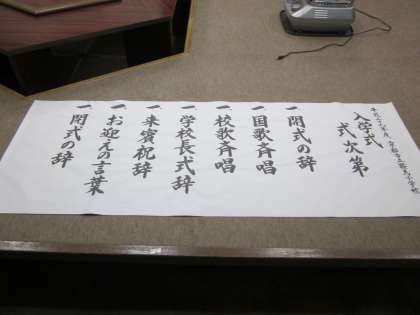 入学式
式次第
一 開式の辞
一 国歌斉唱
一 校歌斉唱
一 学校長式辞
一 来賓祝辞
一 お迎えの言葉
一 閉式の辞